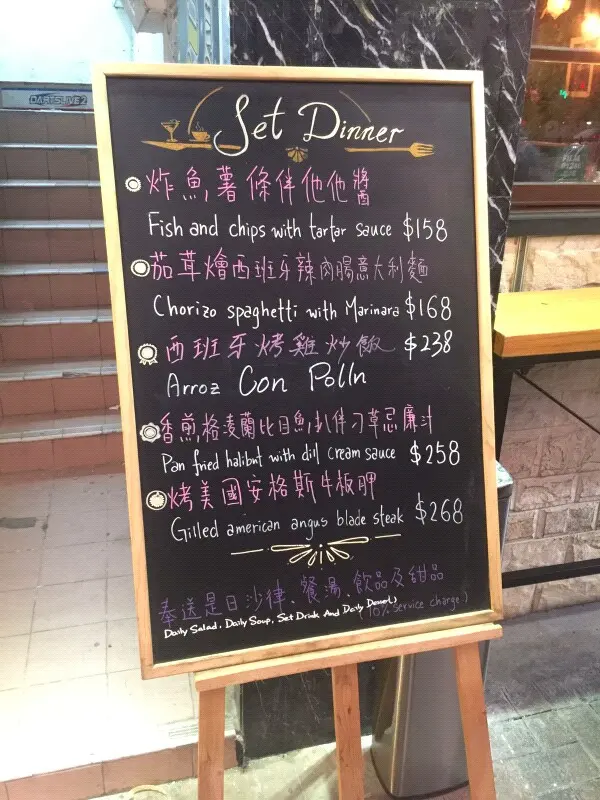 DARTSLIVE2
Set Dinner
炸魚薯條伴他他醬
Fish and chips with tartar sauce $158
茄茸燴西班牙辣肉腸意大利麵
Chorizo spaghetti with Marinara $168
西班牙烤雞炒飯 $238
Arroz Con Polln
香煎格淩蘭比目魚扒伴刁草忌廉汁
Pan fried halibut with dill cream sauce $258
烤美國安格斯牛板胛
Gilled american angus blade steak $268
奉送是日沙律、餐湯、飲品及甜品
Daily Salad, Daily Soup, Set Drink And Daily Dessert
(10% service charge)